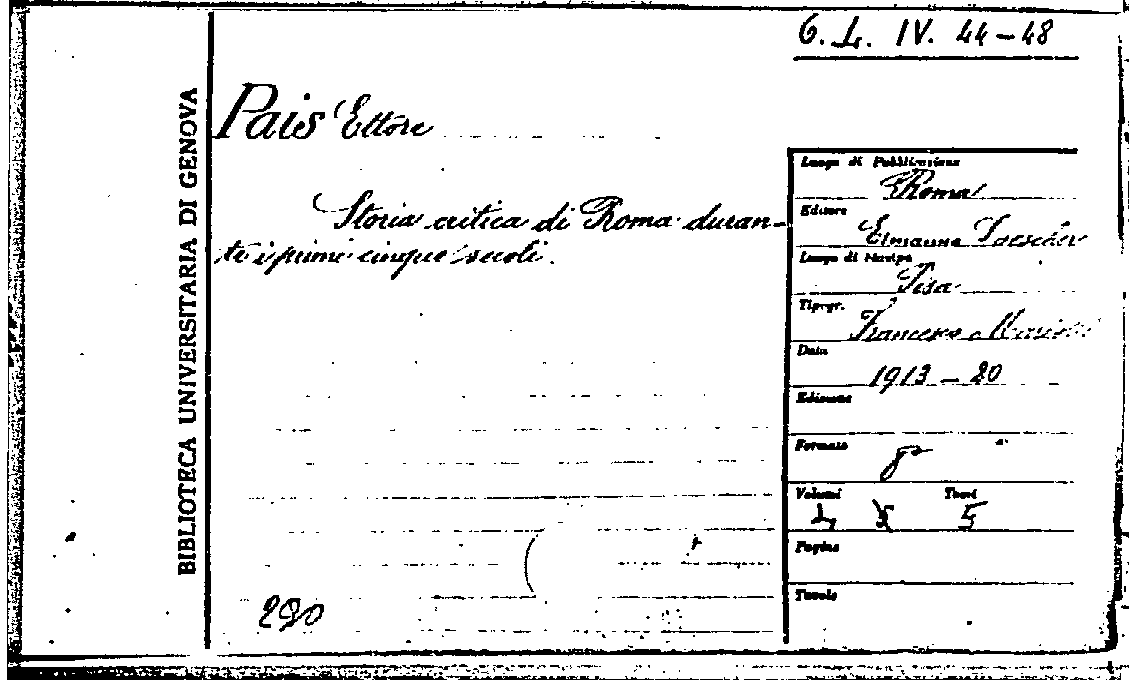 G. L. IV. 44-48
BIBLIOTECA UNIVERSITARIA DI GENOVA
Pais Ettore
Storia critica di Roma duran-
te i primi cinque secoli.
Luogo di Pubblicazione
Roma
Editore
Ermanno Loescher
Luogo di Stampa
Pisa
Tipogr.
Francesco Mariotti
Data
1913-20
Edizione
Formato
8°
Volumi Tomi
4 5
Pagine
Tavole
280